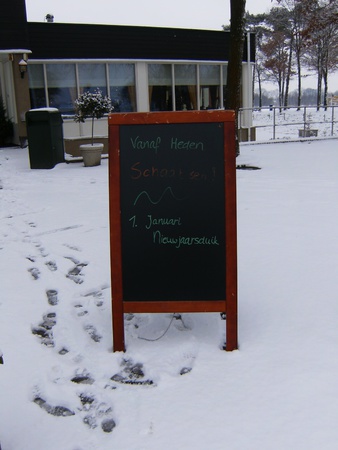 Vanaf Heden
1. Januari
Nieuwjaarsduik